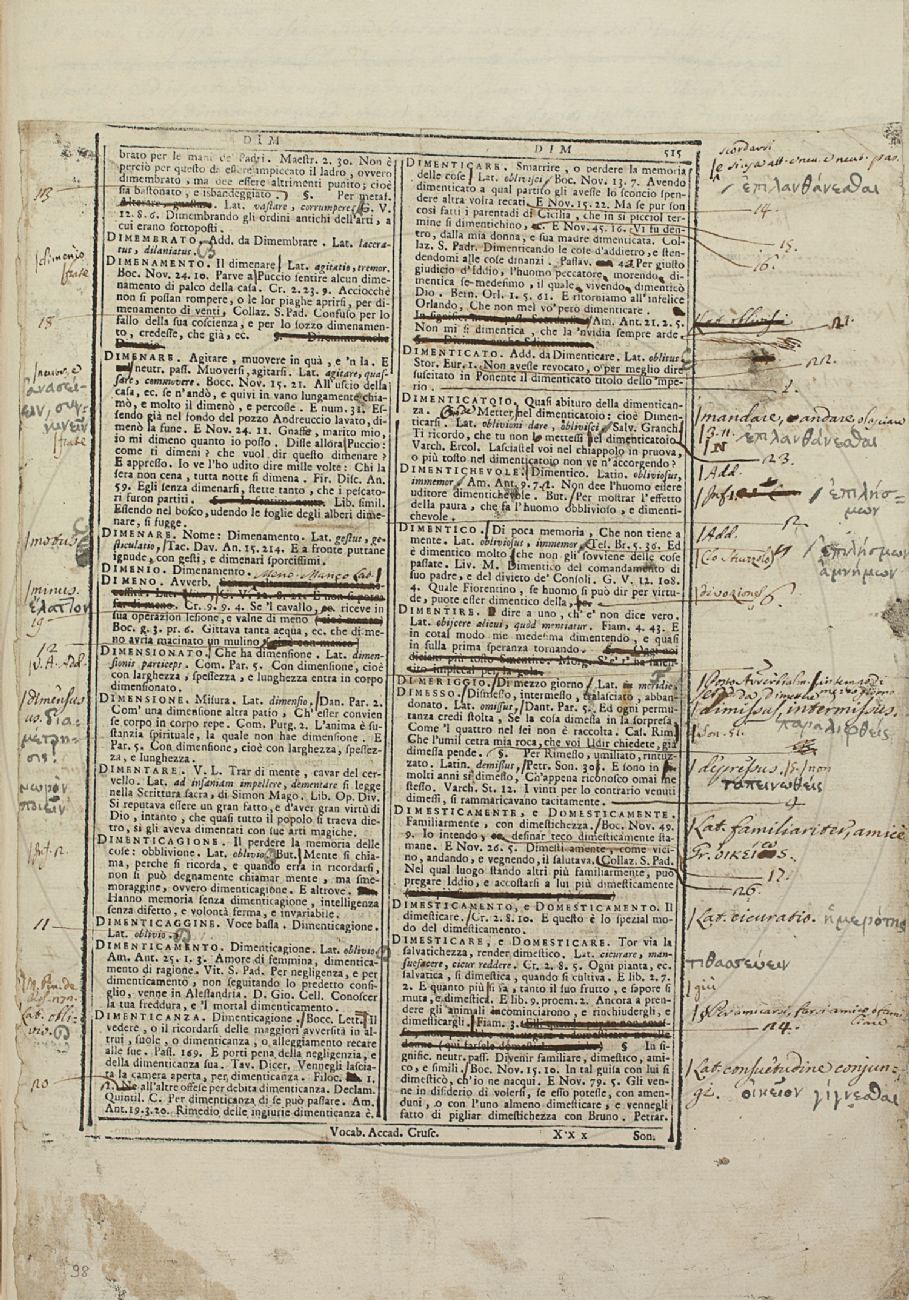 DIM
DIM 515
brato per le mani de' Padri. Maestr. 2. 30. Non è
perciò per questo da essere impiccato il ladro, ovvero
dimembrato, ma dee essere altrimenti punito; cioè
sia bastonato, e isbandeggiato. §. Per metaf.
Lat. vastare, corrumpere. G. V.
12. 8. 6. Dimembrando gli ordini antichi dell'arti, a
cui erano sottoposti.
DIMEMBRATO. Add. da Dimembrare. Lat. lacera-
tus, dilaniatus.
DIMENAMENTO. Il dimenare. Lat. agitatio, tremor.
Boc. Nov. 24. 10. Parve a Puccio sentire alcun dime-
namento di palco della casa. Cr. 2. 23. 9. Acciocchè
non si possan rompere, o le lor piaghe aprirsi, per di-
menamento di venti. Collaz. S. Pad. Confuso per lo
fallo della sua coscienza, e per lo sozzo dimenamen-
to, credesse, che già, ec.
DIMENARE. Agitare, muovere in quà, e 'n la. E
neutr. pass. Muoversi, agitarsi. Lat. agitare, quas-
sare, commovere. Bocc. Nov. 15. 21. All'uscio della
casa, ec. se n'andò, e quivi in vano lungamente chia-
mò, e molto il dimenò, e percosse. E num. 31. Es-
sendo già nel fondo del pozzo Andreuccio lavato, di-
menò la fune. E Nov. 24. 11. Gnaffe, marito mio,
io mi dimeno quanto io posso. Disse allora Puccio:
come ti dimeni? che vuol dir questo dimenare?
E appresso. Io ve l'ho udito dire mille volte: Chi la
sera non cena, tutta notte si dimena. Fir. Disc. An.
59. Egli senza dimenarsi, stette tanto, che i pescato-
ri furon partiti. Lib. simil.
Essendo nel bosco, udendo le foglie degli alberi dime-
nare, si fugge.
DIMENARE. Nome: Dimenamento. Lat. gestus, ge-
sticulatio, Tac. Dav. An. 15. 214. E a fronte puttane
ignude, con gesti, e dimenari sporcissimi.
DIMENIO. Dimenamento.
DIMENO. Avverb.
Cr. 9. 9. 4. Se 'l cavallo, riceve in
sua operazion lesione, e valne di meno
Boc. g. 3. pr. 6. Gittava tanta acqua, ec. che di me-
no avria macinato un mulino
DIMENSIONATO. Che ha dimensione. Lat. dimen-
sionis particeps. Com. Par. 5. Con dimensione, cioè
con larghezza, spessezza, e lunghezza entra in corpo
dimensionato.
DIMENSIONE. Misura. Lat. dimensio, Dan. Par. 2.
Com' una dimensione altra patio, Ch'esser convien
se corpo in corpo repe. Com. Purg. 2. L'anima è su-
stanzia spirituale, la quale non hae dimensione. E
Par. 5. Con dimensione, cioè con larghezza, spessez-
za, e lunghezza.
DIMENTARE. V. L. Trar di mente, cavar del cer-
vello. Lat. ad insaniam impellere, dementare si legge
nella Scrittura sacra, di Simon Mago. Lib. Op. Div.
Si reputava essere un gran fatto, e d'aver gran virtù di
Dio, intanto, che quasi tutto il popolo si traeva die-
tro, sì gli aveva dimentati con sue arti magiche.
DIMENTICAGIONE. Il perdere la memoria delle
cose: obblivione. Lat. oblivio. But. Mente si chia-
ma, perche si ricorda, e quando erra in ricordarsi,
non si può degnamente chiamar mente, ma sme-
moraggine, ovvero dimenticagione. E altrove.
Hanno memoria senza dimenticagione, intelligenza
senza difetto, e volontà ferma, e invariabile.
DIMENTICAGGINE. Voce bassa. Dimenticagione.
Lat. oblivio.
DIMENTICAMENTO. Dimenticagione. Lat. oblivio.
Am. Ant. 25. 1. 3. Amore di femmina, dimentica-
mento di ragione. Vit. S. Pad. Per negligenza, e per
dimenticamento, non seguitando lo predetto consi-
glio, venne in Alessandria. D. Gio. Cell. Conoscer
la tua freddura, e 'l mortal dimenticamento.
DIMENTICANZA. Dimenticagione. Bocc. Lett. Il
vedere, o il ricordarsi delle maggiori avversità in al-
trui, suole, o dimenticanza, o alleggiamento recare
alle sue. Pass. 169. E porti pena della negligenzia, e
della dimenticanza sua. Tav. Dicer. Vennegli lascia-
ta la camera aperta, per dimenticanza. Filoc. 1.
12. Ne all'altre offese per debita dimenticanza. Declam.
Quintil. C. Per dimenticanza di se può passare. Am.
Ant. 19. 3. 20. Rimedio delle ingiurie dimenticanza è.
DIMENTICARE. Smarrire, o perdere la memoria
delle cose. Lat. oblivisci. Boc. Nov. 13. 7. Avendo
dimenticato a qual partito gli avesse lo sconcio spen-
dere altra volta recati. E Nov. 15. 22. Ma se pur son
così fatti i parentadi di Cicilia, che in sì picciol ter-
mine si dimentichino, E Nov. 45. 16. Vi fu den-
tro, dalla mia donna, e sua madre dimenticata. Col-
laz. S. Padr. Dimenticando le cose d'addietro, e sten-
dendomi alle cose dinanzi. Passav. 42. Per giusto
giudicio d'Iddio, l'huomo peccatore, morendo, di-
mentica se medesimo, il quale, vivendo, dimenticò
Dio. Bern. Orl. 1. 5. 61. E ritorniamo all'infelice
Orlando, Che non mel vo' pero dimenticare.
Am. Ant. 21. 2. 5.
Non mi si dimentica, che la 'nvidia sempre arde.
DIMENTICATO. Add. da Dimenticare. Lat. oblitus.
Stor. Eur. 1. Non avesse revocato, o per meglio dire
suscitato in Ponente il dimenticato titolo dello 'mpe-
rio.
DIMENTICATOIO. Quasi abituro della dimentican-
za. Metter nel dimenticatoio: cioè Dimen-
ticarsi. Lat. oblivioni dare, oblivisci. Salv. Granch.
Ti ricordo, che tu non lo mettessi nel dimenticatoio.
Varch. Ercol. Lasciastel voi nel chiappolo in pruova,
o più tosto nel dimenticatoio non ve n'accorgendo?
DIMENTICHEVOLE. Dimentico. Latin. obliviosus,
immemor. Am. Ant. 9. 7. 2. Non dee l'huomo essere
uditore dimentichevole. But. Per mostrar l'effetto
della paura, che fa l'huomo obblivioso, e dimenti-
chevole.
DIMENTICO. Di poca memoria, Che non tiene a
mente. Lat. obliviosus, immemor. Tes. Br. 5. 36. Ed
è dimentico molto, che non gli sovviene delle cose
passate. Liv. M. Dimentico del comandamento di
suo padre, e del divieto de' Consoli. G. V. 12. 108.
4. Quale Fiorentino, se huomo si può dir per virtu-
de, puote esser dimentico della,
DIMENTIRE. dire a uno, ch'e' non dice vero.
Lat. obijcere alicui, quòd mentiatur. Fiam. 4. 43. E
in cotal modo me medesima dimentendo, e quasi
in sulla prima speranza tornando.
DIMERIGGIO. Di mezzo giorno. Lat. meridie.
DIMESSO. Dismesso, intermesso, tralasciato, abban-
donato. Lat. omissus, Dant. Par. 5. Ed ogni permu-
tanza credi stolta, Se la cosa dimessa in la sorpresa,
Come 'l quattro nel sei non è raccolta. Cas. Rim.
Che l'umil cetra mia roca, che voi Udir chiedete, già
dimessa pende. §. Per Rimesso, umiliato, rintuz-
zato. Latin. demissus, Petr. Son. 30. E sono in
molti anni sì dimesso, Ch'appena riconosco omai me
stesso. Varch. St. 12. I vinti per lo contrario venuti
dimessi, si rammaricavano tacitamente.
DIMESTICAMENTE, e DOMESTICAMENTE.
Familiarmente, con dimestichezza. Boc. Nov. 49.
9. Io intendo, desinar teco dimesticamente sta-
mane. E Nov. 26. 5. Dimesticamente, come vici-
no, andando, e vegnendo, il salutava. Collaz. S. Pad.
Nel qual luogo stando altri più familiarmente, può
pregare Iddio, e accostarsi a lui più dimesticamente
DIMESTICAMENTO, e DOMESTICAMENTO. Il
dimesticare. Cr. 2. 8. 10. E questo è lo spezial mo-
do del dimesticamento.
DIMESTICARE, e DOMESTICARE. Tor via la
salvatichezza, render dimestico. Lat. cicurare, man-
suefacere, cicur reddere. Cr. 2. 8. 5. Ogni pianta, ec.
salvatica, si dimestica, quando si cultiva. E lib. 2. 7.
2. E quanto più si va, tanto il suo frutto, e sapore si
muta, e dimestica. E lib. 9. proem. 2. Ancora a pren-
dere gli animali incominciarono, e rinchiudergli, e
dimesticargli. Fiam. 3.
§ In si-
gnific. neutr. pass. Divenir familiare, dimestico, ami-
co, e simili. Boc. Nov. 15. 10. In tal guisa con lui si
dimesticò, ch'io ne nacqui. E Nov. 79. 5. Gli ven-
ne in disiderio di volersi, se esso potesse, con amen-
duni, o con l'uno almeno dimesticare, e vennegli
fatto di pigliar dimestichezza con Bruno. Petrar.
Vocab. Accad. Crusc. X x x Son.
18
minus
ἔλαττον
19
Add.
11
20
scordarsi
ἐπιλανθάνεσθαι
14.
15.
16.
21.
22.
mandare, andare
ἐπιλανθάνεσθαι
23.
Add.
ἐπιλήσ-
μων
Add.
ἐπιλήσμων
ἀμνήμων
dimissus, intermissus.
παραλειφθείς
depressus.
ταπεινωθείς
Lat. familiariter, amicè
Gr. οἰκείως.
17.
26.
Lat. cicuratio. ἡμερότης
τιθασσεύειν
più
24.
Lat. consuetudine conjun-
gi. οἰκεῖον γίγνεσθαι
98